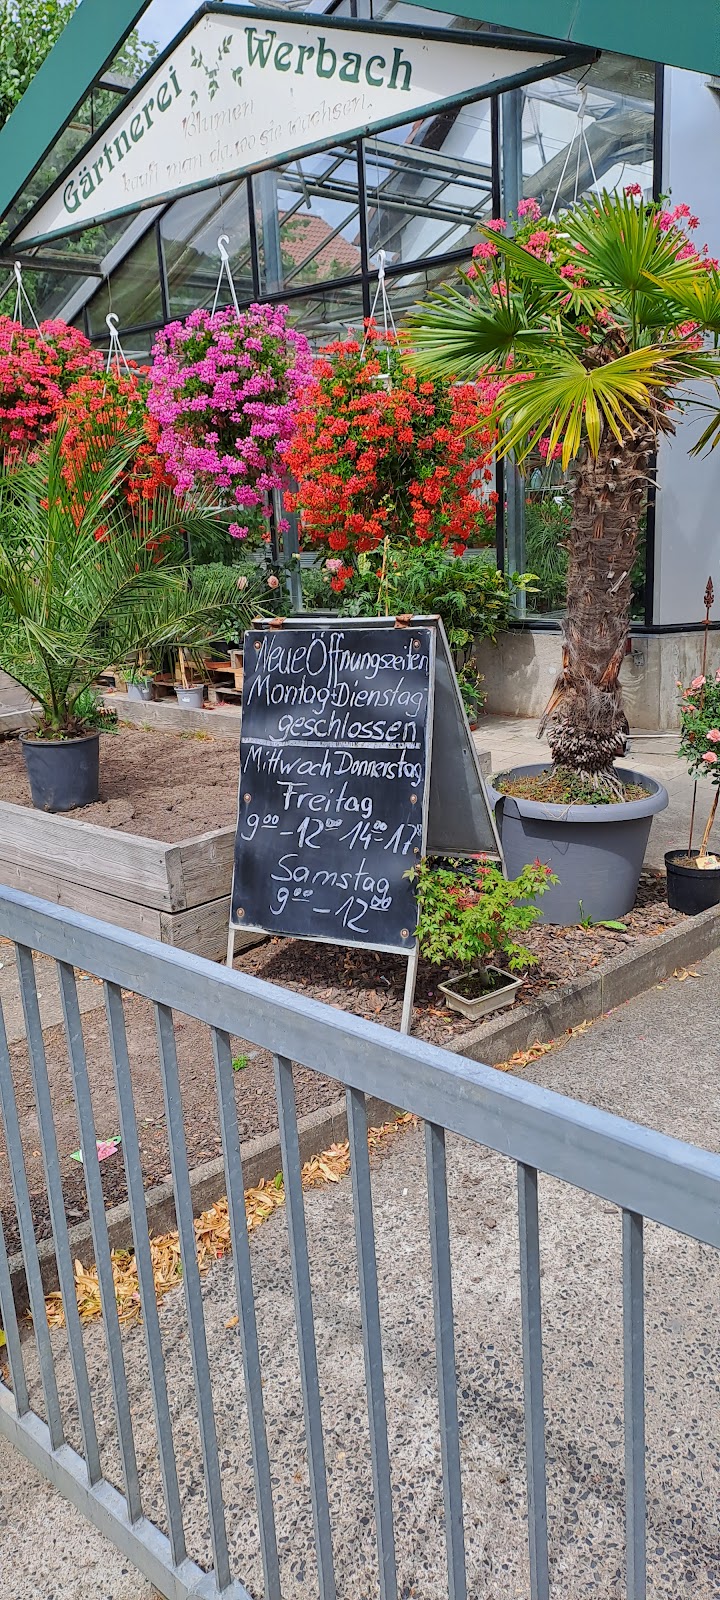 Gärtnerei Werbach
Blumen
kauft man da, wo sie wachsen.
Neue Öffnungszeiten
Montag+Dienstag
geschlossen
Mittwoch Donnerstag
Freitag
9⁰⁰-12⁰⁰ 14⁰⁰-17⁰⁰
Samstag
9⁰⁰-12⁰⁰